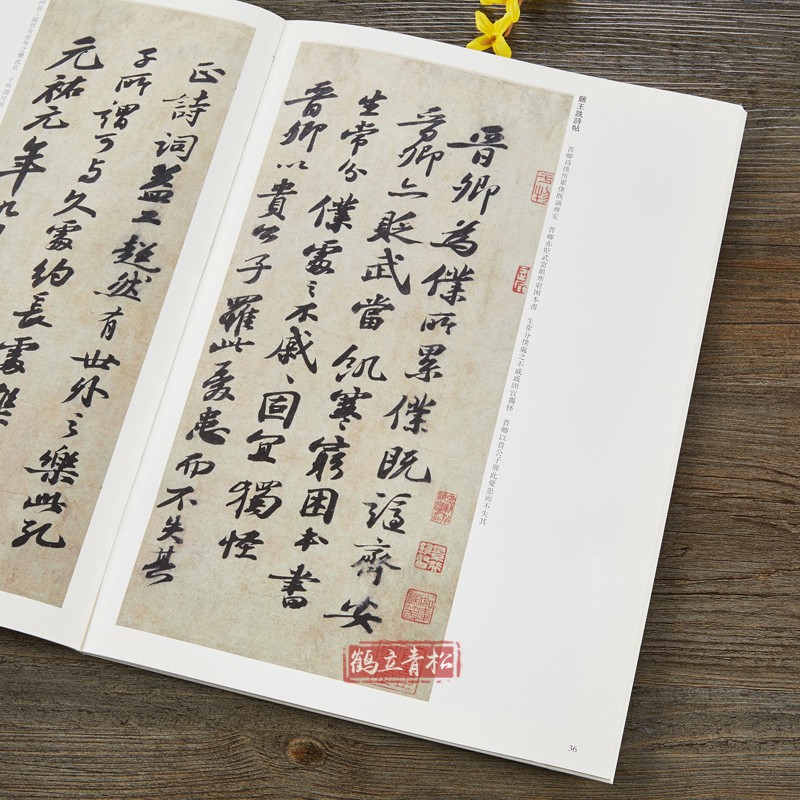 題王詵詩帖
晉卿為僕所累僕既謫齊安 晉卿亦貶武當飢寒窮困本書 生常分僕處之不戚戚固宜獨怪 晉卿以貴公子罹此憂患而不失其
晉卿為僕所累僕既謫齊安
晉卿亦貶武當飢寒窮困本書
生常分僕處之不戚〻固宜獨怪
晉卿以貴公子罹此憂患而不失其
正詩詞益工超然有世外之樂此孔
子所謂可与久處約長處樂
元祐元年九
鹤立青松
36